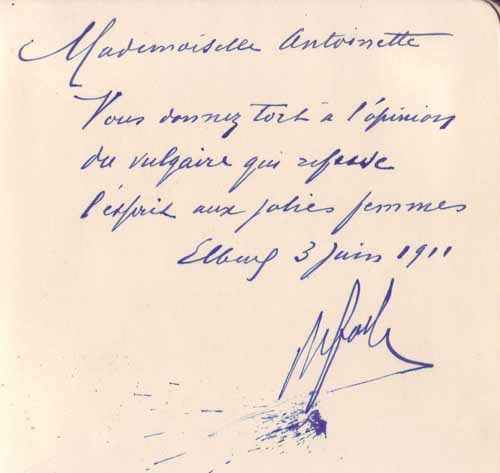 Mademoiselle Antoinette
Vous donnez tort à l'opinion
du vulgaire qui refuse
l'esprit aux jolies femmes
3 Juin 1911